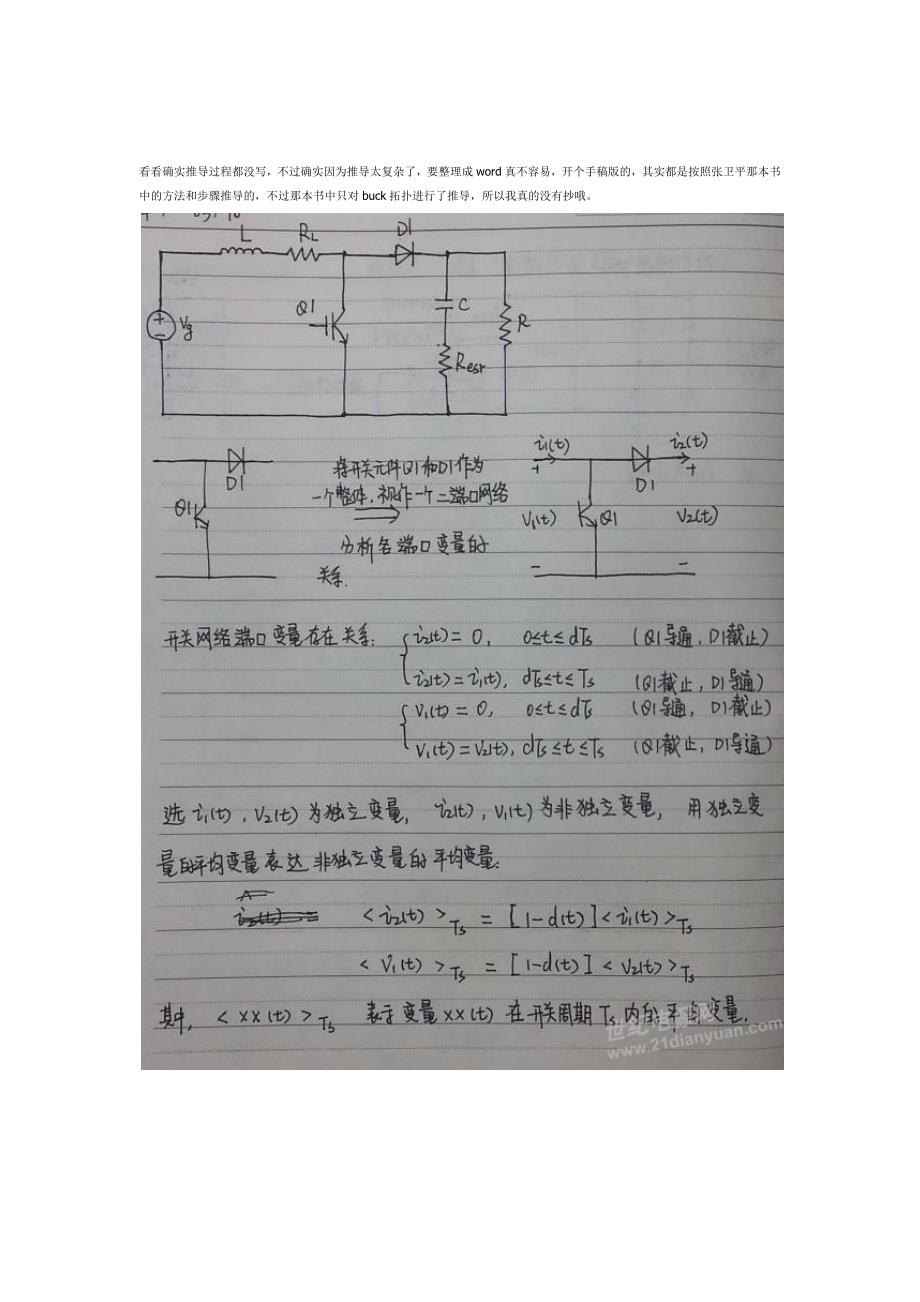 看看确实推导过程都没写，不过确实因为推导太复杂了，要整理成 word 真不容易，开个手稿版的，其实都是按照张卫平那本书
中的方法和步骤推导的，不过那本书中只对 buck 拓扑进行了推导，所以我真的没有抄哦。
L RL D1
Q1
+ C
Vg R
−
Resr
i1(t) i2(t)
D1 将开关元件Q1和D1作为 + D1 +
Q1 一个整体，视作一个二端口网络 V1(t) Q1 V2(t)
分析各端口变量的
关系. − −
开关网络端口变量存在关系： i2(t) = 0, 0≤t≤dTs (Q1导通，D1截止)
i2(t) = i1(t), dTs≤t≤Ts (Q1截止，D1导通)
V1(t) = 0, 0≤t≤dTs (Q1导通，D1截止)
V1(t) = V2(t), dTs≤t≤Ts (Q1截止，D1导通)
选 i1(t), V2(t) 为独立变量， i2(t), V1(t) 为非独立变量， 用独立变
量的平均变量表达非独立变量的平均变量：
<i2(t)>Ts = [1-d(t)]<i1(t)>Ts
<V1(t)>Ts = [1-d(t)]<V2(t)>Ts
其中， <xx(t)>Ts 表示变量xx(t) 在开关周期Ts内的平均变量.
世纪电源网
www.21dianyuan.com